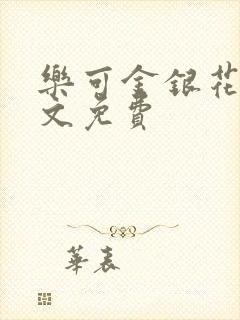 樂可金銀花
文免費
華表